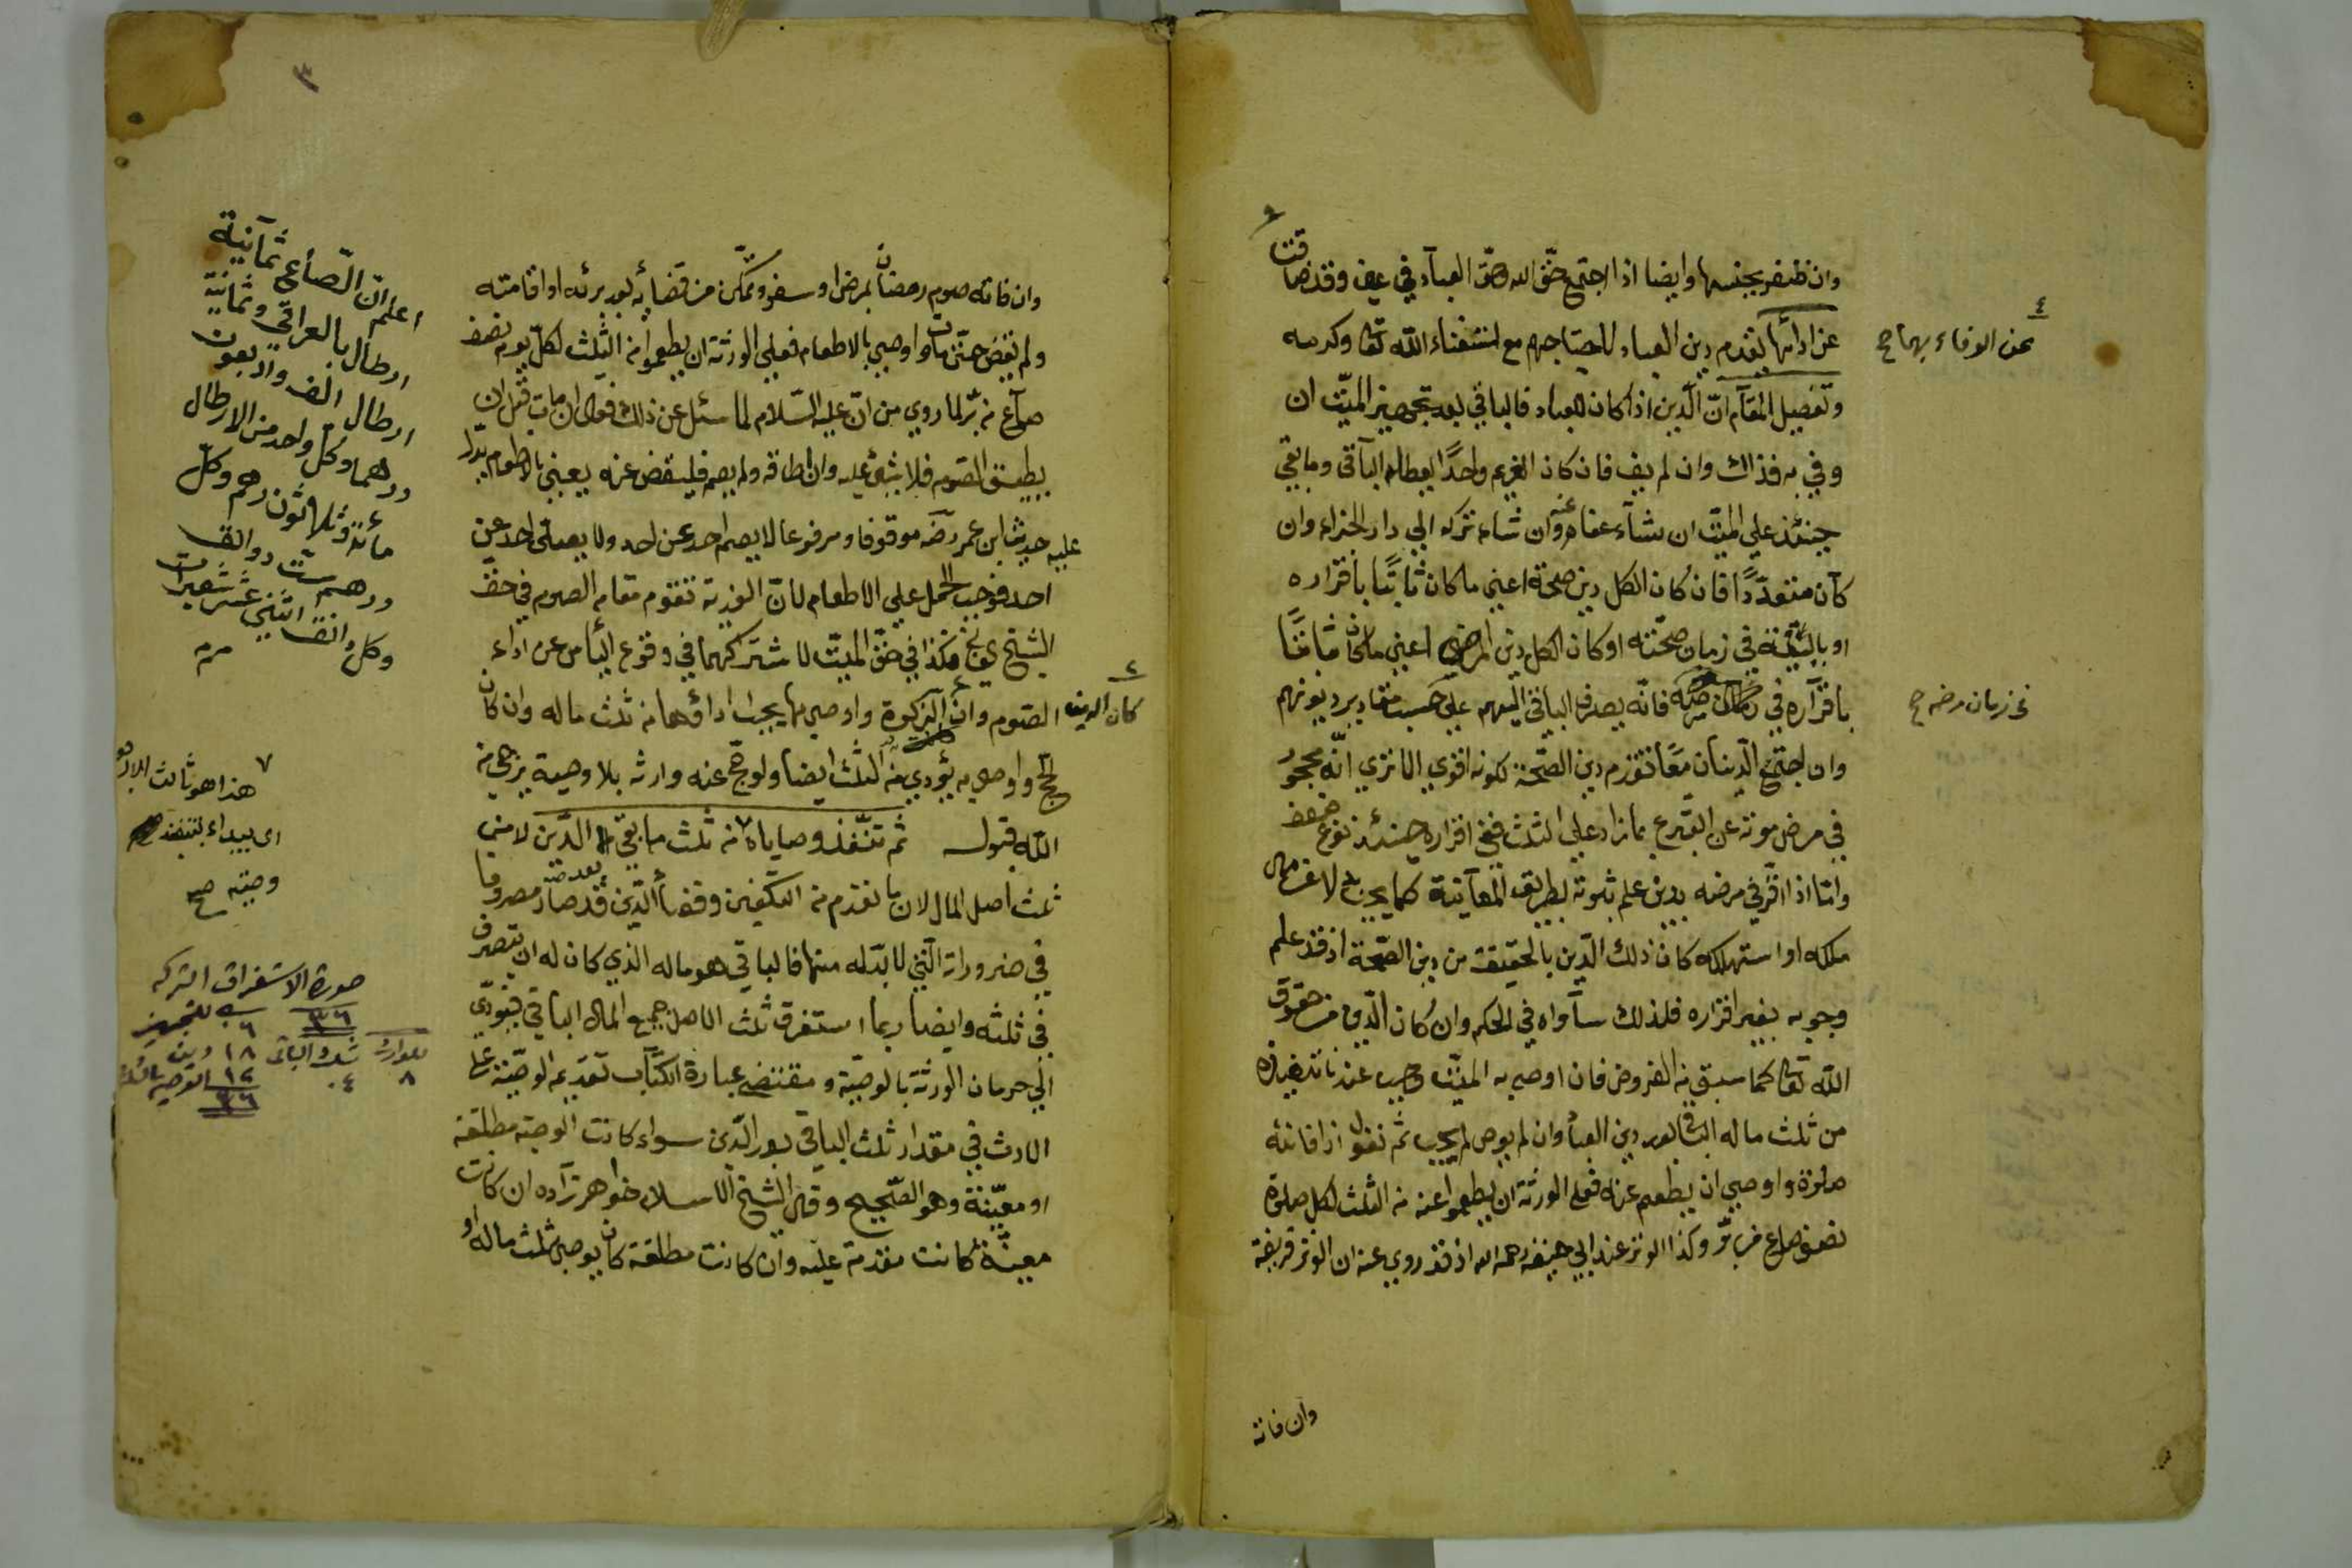 وان ظفر بجنسها وايضا اذا اجتمع حقّ الله وحقّ العبآد في عين وقد ضاقت
عن ادائهما يقدم دين العباد لاحتياجهم مع استغناء الله تعا وكرمه
عن الوفاء بهما صح
وتفصيل المقآم انّ الّدين اذا كان للعباد فالباقي بعد تجهيز الميّت ان
وفي به فذاك وان لم يف فان كان الغريم واحدًا يعطى له الباقى وما بقي
حينئذ علي الميّت ان شآء عفا عنه وان شاء تركه الي دار الجزاء وان
كآن متعدّدًا فان كان الكل دين صحة اعني ما كان ثابتًا باقراره
او بالبيّنة في زمان صحّته او كان الكل دين المرض اعني ما كان ثابتًا
باقرآره في زمان مرضه فانّه يصرف الباقي اليهم علي حسب مقادير ديونهم
في زمان مرضه صح
وان اجتمع الدّينان معًا تقدم دين الصّحّة لكونه اقوي الا تري انّه محجور
في مرض موته عن التبّرع بما زاد علي الثلث ففي اقراره حينئذ نوع ضعف
وامّا اذا اقرّ في مرضه بدين علم ثبوته بطريق المعآينة كما يجب بدلا عن مال
ملكه او استهلكه كان ذلك الّدين بالحقيقة من دين الصّحة اذ قد علم
وجوبه بغير اقراره فلذلك سآواه في الحكم وان كان الّدين من حقوق
الله تعا كما سبق من الفروض فان اوصي به الميّت وجب عندنا تنفيذه
من ثلث ماله الباقي بعد دين العبآد وان لم يوص لم يجب ثم نقول اذا فاتته
صلوة واوصي ان يطعم عنه فعلى الورثة ان يطعموا عنه من الثلث لكل صلوة
نصف صاع من برّ وكذا الوتر عند ابي حنيفة رحمه الله اذ قد روي عنه ان الوتر فريضة
وان فاته
٣
وان فاته صوم رمضان بمرض او سفر وتمكّن من قضايه بعد برئه او اقامته
ولم يقض حتّى مات واوصي بالاطعام فعلي الورثة ان يطعموا من الثلث لكلّ يوم نصف
صآع من برّ لما روي من انّه عليه السّلام لما سئل عن ذلك فقال ان مات قبل ان
يطيق الصّوم فلا شئ عليه وان اطاقه ولم يصم فليقض عنه يعني بالاطعام بدلالة
عليه حديث ابن عمر رضه موقوفا ومرفوعا لا يصم احد عن احد ولا يصلى احد عن
احد فوجب الحمل علي الاطعام لانّ الفدية تقوم مقام الصوم في حقّ
الشيخ الفاني فكذا في حقّ الميت لاشتراكهما في وقوع اليأس عن اداء
الصّوم وان كان الدين الزكوة واوصي بها يجب اداؤها من ثلث ماله وان كان
الحجّ واوصي به يؤدي من الثلث ايضا ولو حجّ عنه وارثه بلا وصية يرجى من
الله قبول ثم تنفّذ وصاياه من ثلث ما بقي بعد الدّين لا من
ثلث اصل المال لان ما تقدم من التكفين وقضاء الدّين قد صار مصروفا
في ضروراته الّتي لا بدّ له منها فالباقي هو ماله الذي كان له ان يتصرف
في ثلثه وايضا ربما استغرق ثلث الاصل جميع المال الباقي فيؤدّي
الي حرمان الورثة بالوصيّة ومقتضي عبارة الكتّاب تقديم الوصيّة على
الارث في مقدار ثلث الباقي بعد الدّين سواء كانت الوصية مطلقة
او معيّنة وهو الصّحيح وقال الشيخ الاسلام خواهر زآده ان كانت
معينّة كانت مقدمة عليه وان كانت مطلقة كان يوصي بثلث ماله او
اعلم انّ الصّاع ثمآنية
ارطال بالعراقي وثمانية
ارطال الف واربعون
درهما وكلّ واحد من الارطال
مائة وثلاثون درهم وكلّ
درهم ستّ دوانق
وكل دانق اثني عشر شعيرات
٧
هذا هو ثالث الاربعة
اى يبداء بتنفيذ
وصيته صح
صورة الاستغراق التركه
٣٦
٦ للتجهيز
١٨ دين
١٢ الوصية
٣٦
ثلث الباقى
٤
للوارث
٨